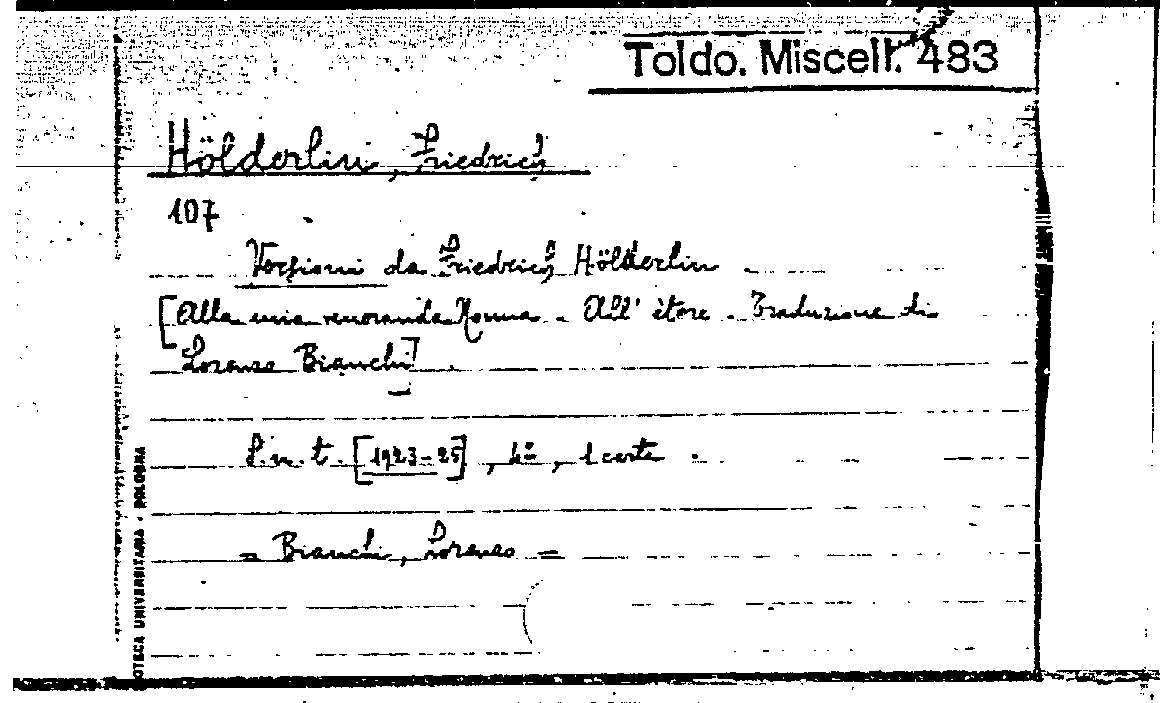 Toldo. Miscell. 483
Hölderlin, Friedrich
107
Versioni da Friedrich Hölderlin
[Alla mia veneranda Nonna - All' ètere - Traduzione di
Lorenzo Bianchi].
S.n.t. [1923-25], 4º, 1 carta.
= Bianchi, Lorenzo =
OTECA UNIVERSITARIA - BOLOGNA